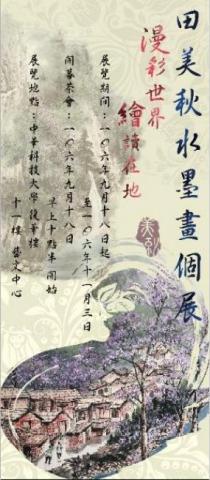 田美秋水墨畫個展
漫彩世界
繪讀在地
展覽期間：一〇六年九月十八日起
至一〇六年十一月三日
開幕茶會：一〇六年九月十八日
早上十點半開始
展覽地點：中華科技大學復華樓
十一樓 藝文中心